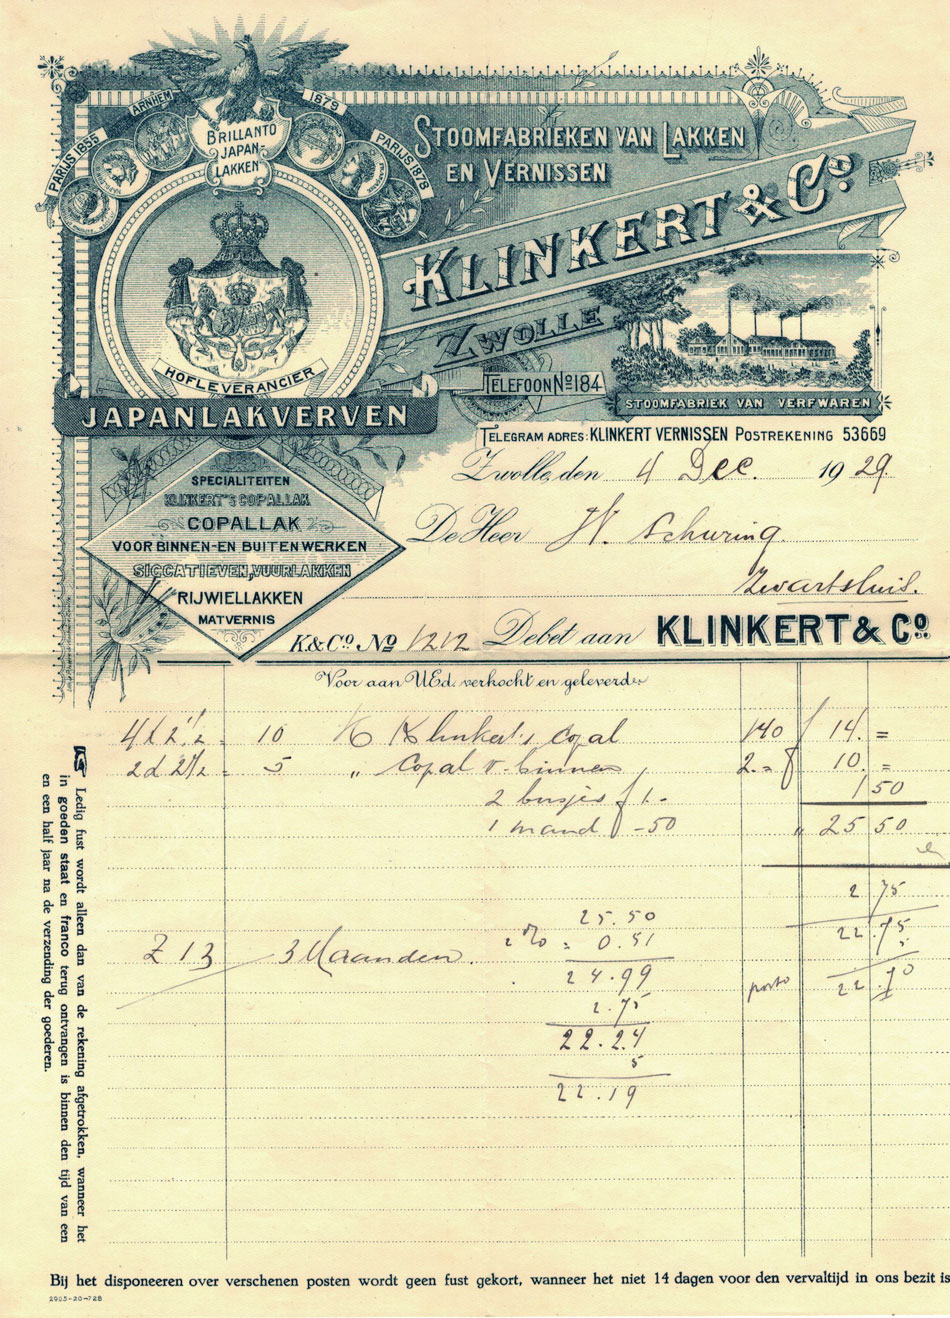 PARIJS 1855
ARNHEM
1879
PARIJS 1878
BRILLANTO
JAPAN-
LAKKEN
STOOMFABRIEKEN VAN LAKKEN
EN VERNISSEN
KLINKERT & Co.
ZWOLLE
HOFLEVERANCIER
TELEFOON No 184
STOOMFABRIEK VAN VERFWAREN
JAPANLAKVERVEN
TELEGRAM ADRES: KLINKERT VERNISSEN POSTREKENING 53669
Zwolle, den 4 Dec. 1929.
SPECIALITEITEN
KLINKERT'S COPALLAK
COPALLAK
VOOR BINNEN-EN BUITENWERKEN
SICCATIEVEN, VUURLAKKEN
RIJWIELLAKKEN
MATVERNIS
De Heer W. Schuring
Zwartsluis.
K & Co. No 1212 Debet aan KLINKERT & Co.
Voor aan UEd. verkocht en geleverd:
4 d 2 1/2 = 10 K Klinkert's Copal 140 f 14. =
2 d 2 1/2 = 5 " Copal v. binnen 2. = f 10. =
2 busjes f 1.- 1 50
1 mand f -50 " 25 50
2 75
25.50
22.75
Z 13 3 Maanden. 2% = 0.51
5
24.99
porto 22.70
2.75
22.24
5
22.19
Ledig fust wordt alleen dan van de rekening afgetrokken, wanneer het
in goeden staat en franco terug ontvangen is binnen den tijd van een
en een half jaar na de verzending der goederen.
Bij het disponeeren over verschenen posten wordt geen fust gekort, wanneer het niet 14 dagen voor den vervaltijd in ons bezit is
2905-20-728